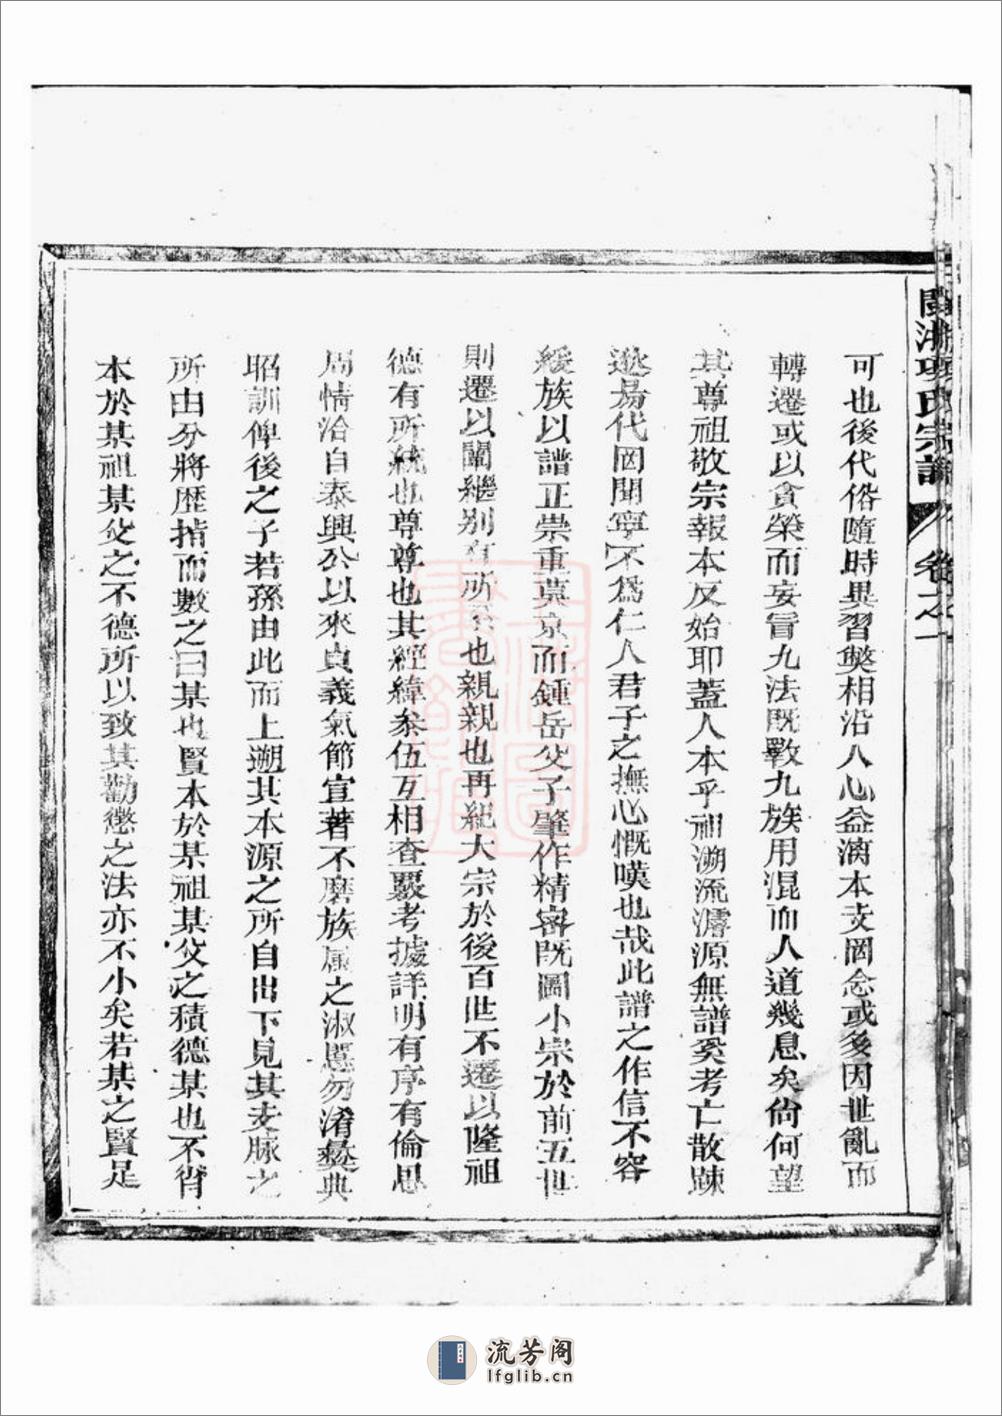 閩浙項氏宗譜 卷之一
可也後代俗隨時異習獘相沿人心益漓本支罔念或多因世亂而
轉遷或以貪榮而妄冐九法既斁九族用混而人道幾息矣尙何望
其尊祖敬宗報本反始耶蓋人本乎祖溯流濬源無譜奚考亡散踈
逖易代罔聞寕不爲仁人君子之撫心慨嘆也哉此譜之作信不容
緩族以譜正崇重莫京而鍾岳父子肇作精宻既圖小宗於前五世
則遷以闡繼别有所 也親親也再紀大宗於後百世不遷以隆祖
德有所統也尊尊也其經緯叅伍互相查覈考據詳明有序有倫思
周情洽自泰興公以來貞義氣節宣著不磨族屬之淑慝勿淆彜典
昭訓俾後之子若孫由此而上遡其本源之所自出下見其支脉之
所由分將歴指而數之曰某也賢本於某祖某父之積德某也不肖
本於某祖某父之不德所以致其勸懲之法亦不小矣若某之賢足
流芳阁
lfglib.cn